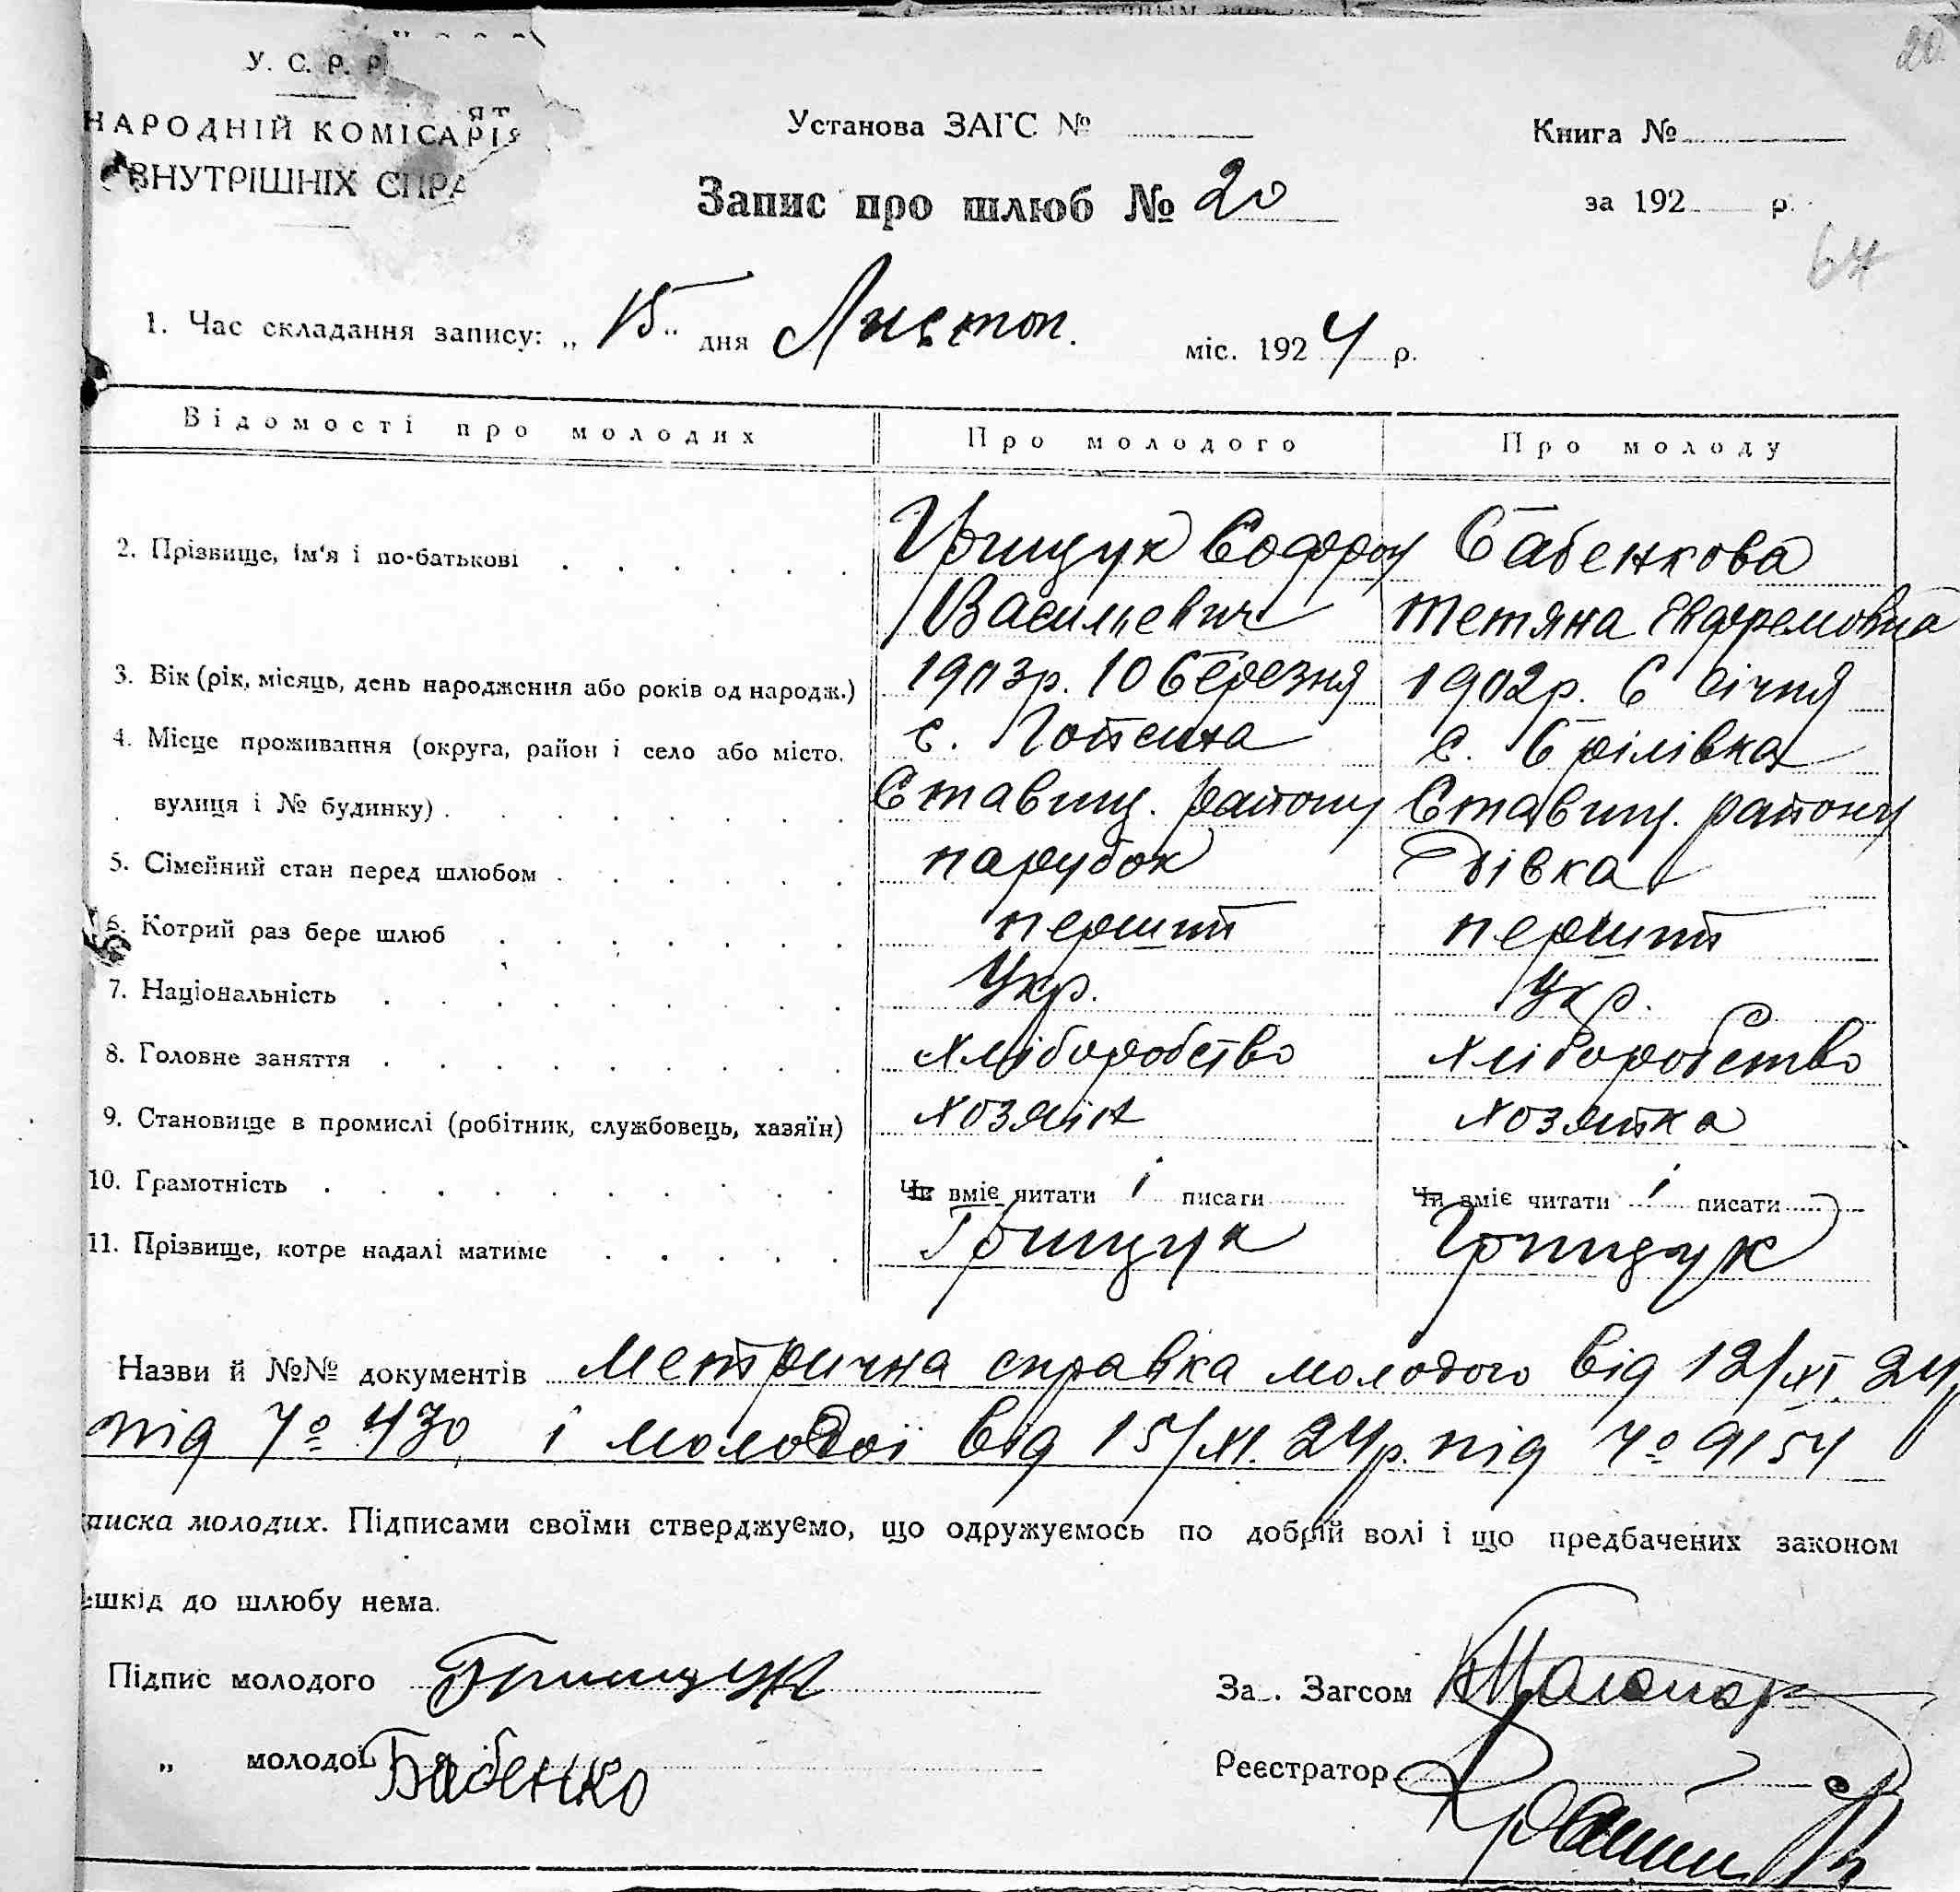 20
У. С. Р. Р.
НАРОДНІЙ КОМІСАРІЯТ
ВНУТРІШНІХ СПРА
Установа ЗАГС №
Книга №
Запис про шлюб № 20
за 192 р.
64
1. Час складання запису: „ 15 " дня Листоп. міс. 1924 р.
Відомості про молодих Про молодого Про молоду
2. Прізвище, ім'я і по-батькові Грищук Софрон Бабенкова
Васильевич Тетяна Евфремовна
3. Вік (рік, місяць, день народження або років од народж.) 1903р. 10 березня 1902р. 6 січня
4. Місце проживання (округа, район і село або місто, с. Гопчиха с. Брілівка
вулиця і № будинку) Ставищ. району Ставищ. району
5. Сімейний стан перед шлюбом парубок дівка
6. Котрий раз бере шлюб перший перший
7. Національність Укр. Укр.
8. Головне заняття хліборобство хліборобство
9. Становище в промислі (робітник, службовець, хазяїн) хозяін хозяйка
10. Грамотність Чи вміє читати і писати Чи вміє читати і писати
11. Прізвище, котре надалі матиме Грищук Грищук
Назви й №№ документів Метрична справка молодого від 12/XI 24р
під № 430, і молодоі від 15/XI. 24р. під № 9154
писка молодих. Підписами своїми стверджуємо, що одружуємось по добрій волі і що предбачених законом
ешкід до шлюбу нема.
Підпис молодого Грищук За . Загсом
„ молодої Бабенко Реєстратор